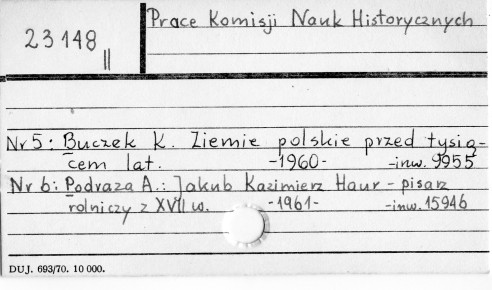 23148 II
Prace Komisji Nauk Historycznych
Nr 5: Buczek K. Ziemie polskie przed tysią-
cem lat. -1960- -inw. 9955
Nr 6: Podraza A.: Jakub Kazimierz Haur - pisarz
rolniczy z XVII w. -1961- -inw. 15946
DUJ. 693/70. 10 000.